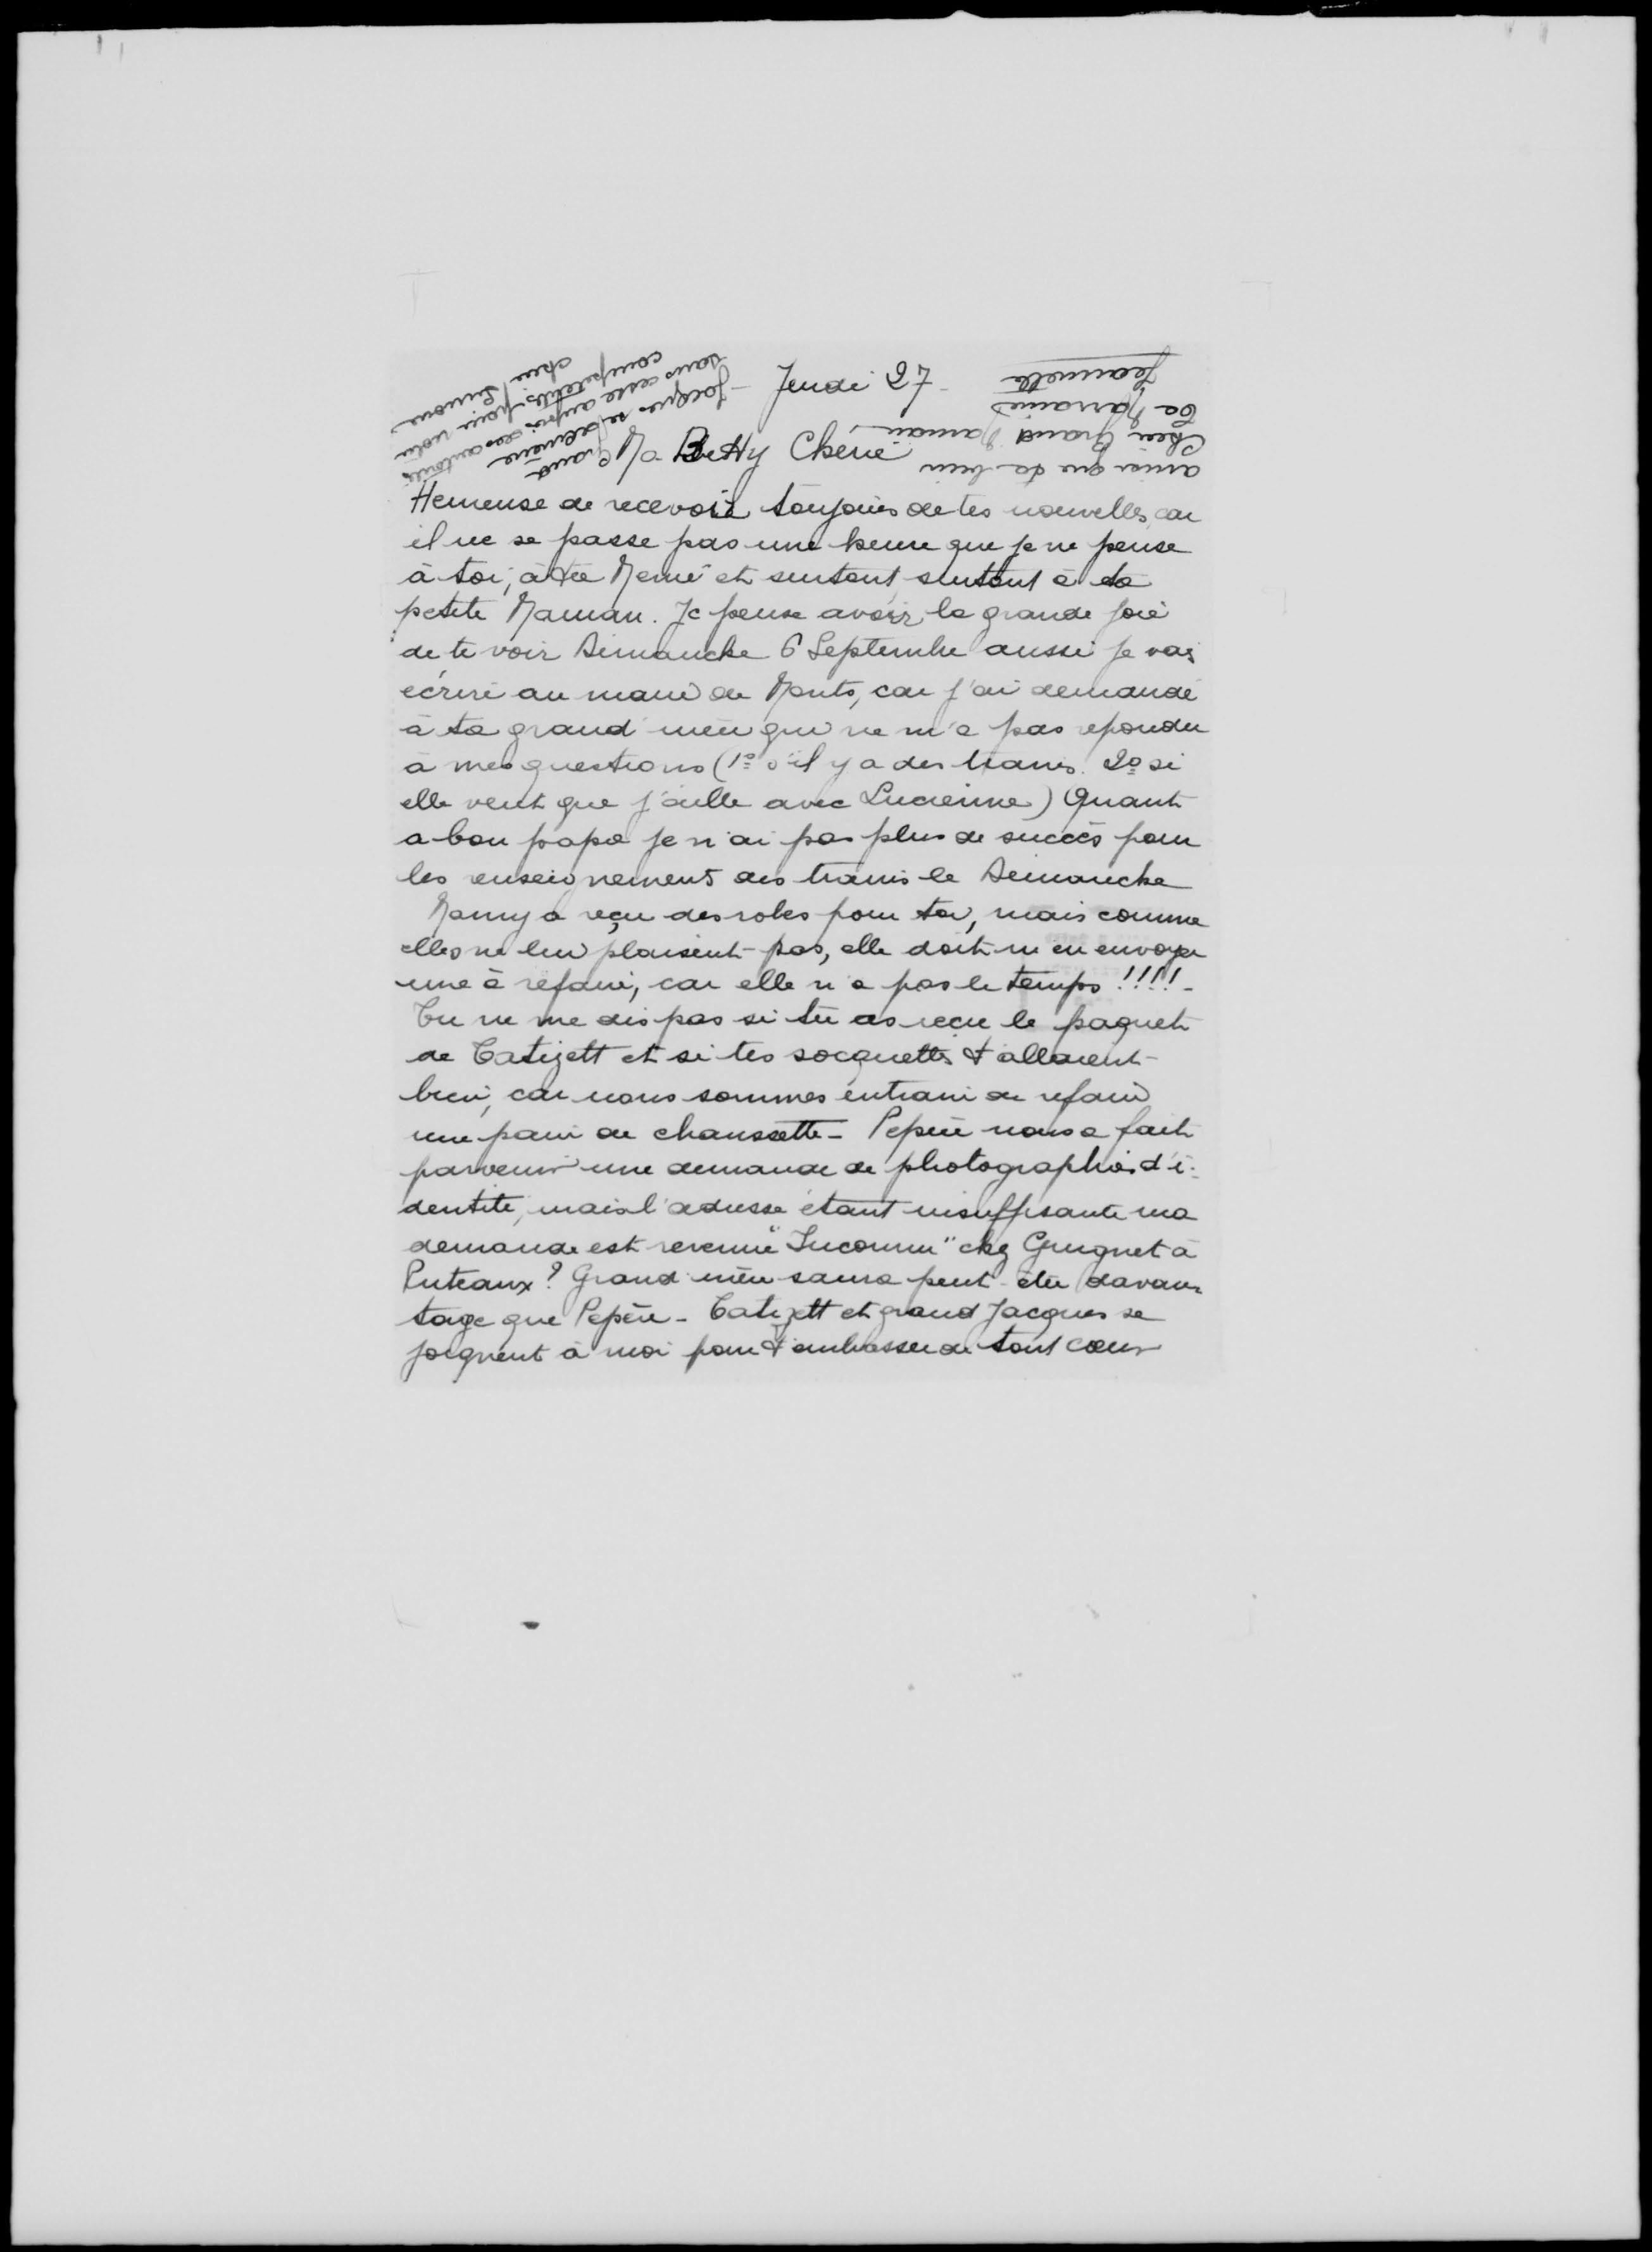 Jeudi 27 -
Ma Betty Chérie,
Heureuse de recevoir toujours de tes nouvelles, car
il ne se passe pas une heure que je ne pense
à toi, à ta Mémé et surtout, surtout à ta
petite Maman. Je pense avoir la grande joie
de te voir Dimanche 6 Septembre aussi je vais
écrire au maire de Monts, car j'ai demandé
à ta grand'mère qui ne m'a pas répondu
à mes questions (1º s'il y a des trains. 2º si
elle veut que j'aille avec Lucienne) Quant
a bon papa je n'ai pas plus de succès pour
les renseignements des trains le Dimanche
Mamy a reçu des robes pour toi, mais comme
elles ne lui plaisent pas, elle doit m'en envoyer
une à refaire, car elle n'a pas le temps !!!! -
Tu ne me dis pas si tu as reçu le paquet
de Tatizett et si tes socquettes t'allaient
bien, car nous sommes entrain de refaire
une paire de chaussette - Pépère nous a fait
parvenir une demande de photographies d'i-
dentité, mais l'adresse étant insuffisante ma
demande est revenue "Inconnu" chez Guignet à
Puteaux? Grand'mère saura peut-être davan-
tage que Pépère - Tatizett et grand Jacques se
joignent à moi pour t'embrasser de tout coeur
ainsi que ta bien
chère Grand Maman,
Ta Marraine
Jeannette
Grand
Jacques se démène
sans cesse auprès des autorités
compétentes pour notre
chère Simone